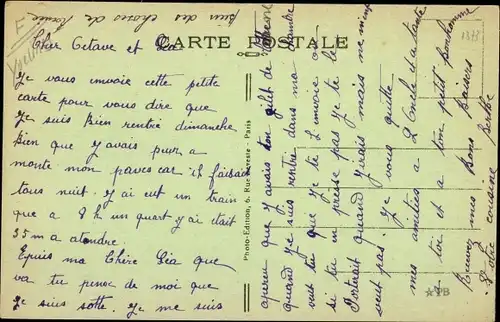 Cher Octave et Léa
CARTE POSTALE
Je vous invoie cette petite
carte pour vous dire que
Je suis Bien rentré dimanche
Bien que Y avais peur a
monté mon paves car il faisait
tous nuit. J ai eut un train
que a 8 h un quart J ai était
35 m a atendre.
Epuis ma Chère Léa que
va tu penser de moi que
Je suis sotte. Je me suis
aperçu que J avais ton gilit de
quand Je suis rentré dans ma chambre
veut tu que Je te L invoie ou
si tu n en preisse pas Je te le
Porterait quand J irais mais ne
veut pas. Je vous quitte
mes amitiés a L Oncle et a tante
a toi et a ton petit bonhomme
Recevez mes Bons Baisers
Votre cousine Berthe
rien des choses de
Photo-Edition, 6, Rue Vesle - Paris